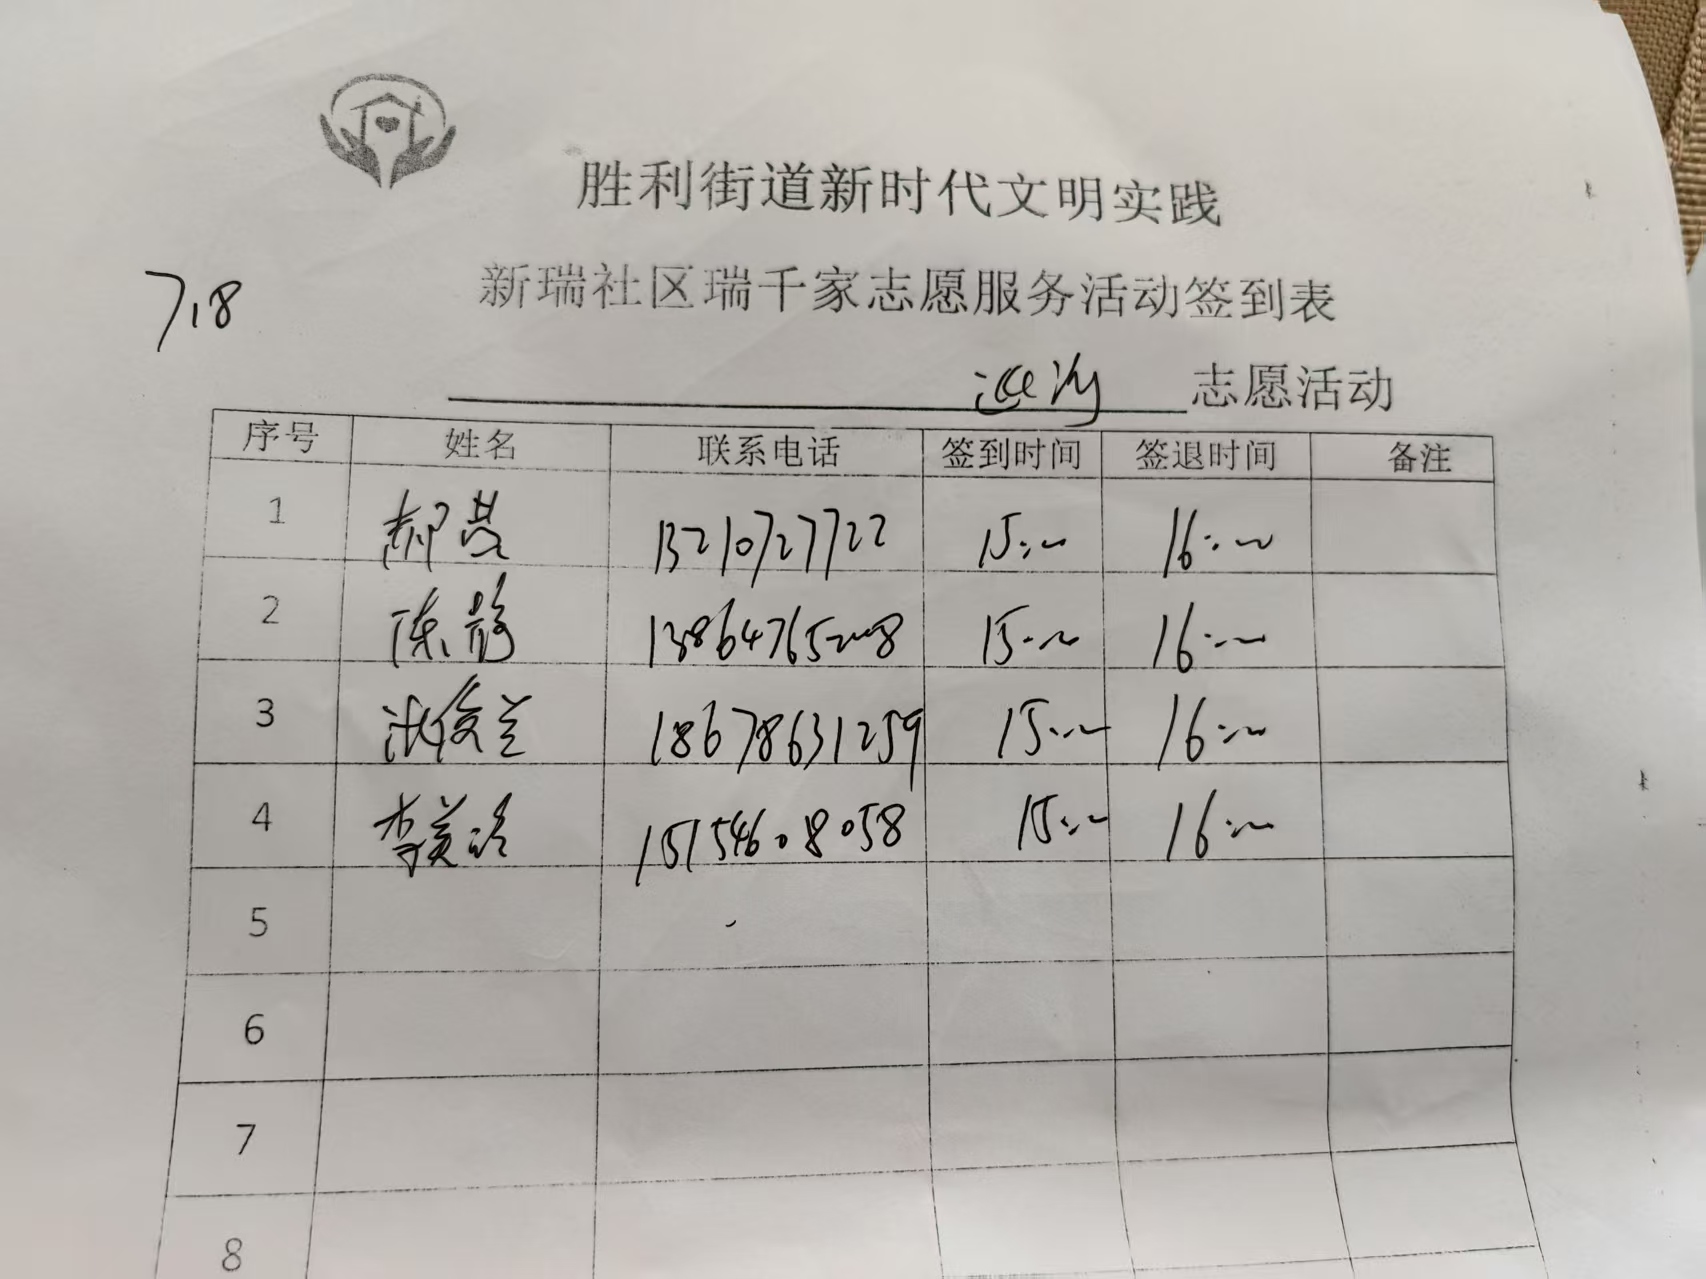 胜利街道新时代文明实践
7.18
新瑞社区瑞千家志愿服务活动签到表
志愿活动
序号 姓名 联系电话 签到时间 签退时间 备注
1 郝营 13210727722 15:00 16:00
2 陈静 13864765008 15:00 16:00
3 俊兰 18678631259 15:00 16:00
4 李美 15154608058 15:00 16:00
5
6
7
8